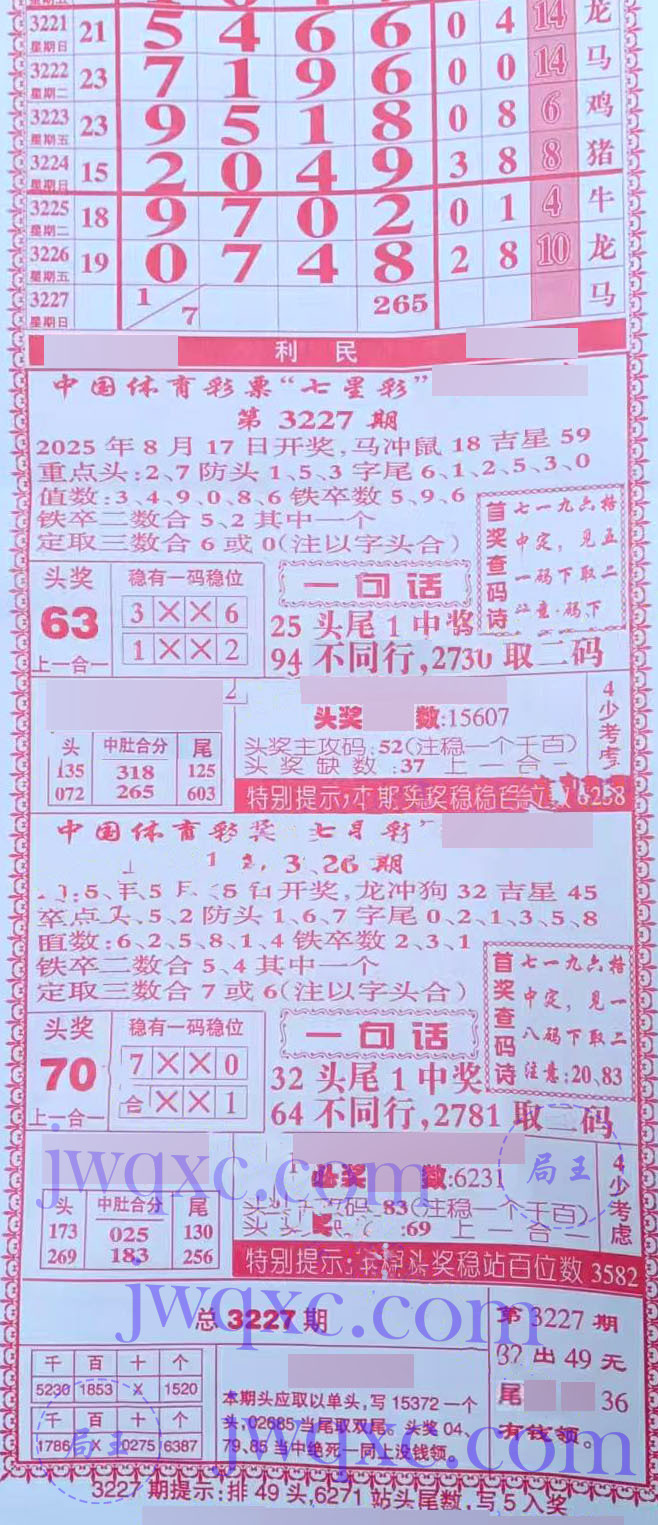 3221 星期日 21 5 4 6 6 0 4 14 龙
3222 星期二 23 7 1 9 6 0 0 14 马
3223 星期五 23 9 5 1 8 0 8 6 鸡
3224 星期日 15 2 0 4 9 3 8 8 猪
3225 星期二 18 9 7 0 2 0 1 4 牛
3226 星期五 19 0 7 4 8 2 8 10 龙
3227 星期日 1/7 265 马
利民
中国体育彩票“七星彩”
第 3227 期
2025 年 8 月 17 日开奖,马冲鼠 18 吉星 59
重点头:2、7 防头 1、5、3 字尾 6、1、2、5、3、0
值数:3、4、9、0、8、6 铁卒数 5、9、6
铁卒二数合 5、2 其中一个
定取三数合 6 或 0(注以字头合)
首奖查码诗
七一九六格
中定，见五
一码下取二
码下
头奖
63
上一合一
稳有一码稳位
3 X X 6
1 X X 2
一句话
25 头尾 1 中奖
94 不同行,2730 取二码
2
头 中肚合分 尾
135 318 125
072 265 603
头奖 数:15607
头奖主攻码:52(注稳一个千百)
头奖缺数:37 上一合一
4少考虑
特别提示:本期头奖稳稳百位数6238
中国体育彩 七 彩
3 26 期
开奖,龙冲狗 32 吉星 45
5、2 防头 1、6、7 字尾 0、2、1、3、5、8
值数:6、2、5、8、1、4 铁卒数 2、3、1
铁卒二数合 5、4 其中一个
定取三数合 7 或 6(注以字头合)
首奖查码诗
七一九六格
中定，见一
八码下取二
注意:20、83
头奖
70
上一合一
稳有一码稳位
7 X X 0
合 X X 1
一句话
32 头尾 1 中奖
64 不同行,2781 取 码
jwqxc.com
局王
头 中肚合分 尾
173 025 130
269 183 256
奖 数:6231
码:83(注稳一个千百)
:69 上一合一
4少考虑
特别提示: 头奖稳站百位数 3582
jwqxc.com
总 3227 期
千 百 十 个
5230 1853 X 1520
千 百 十 个
1786 X 0275 6387
局王
本期头应取以单头,写 15372 一个
头,02685 当尾取双尾。头奖 04、
79、85 当中绝死一同上没钱领。
第 3227 期
32 出 49 元
尾 36
有钱领。
jwqxc.com
3227 期提示:排 49 头,6271 站头尾数,写 5 入奖